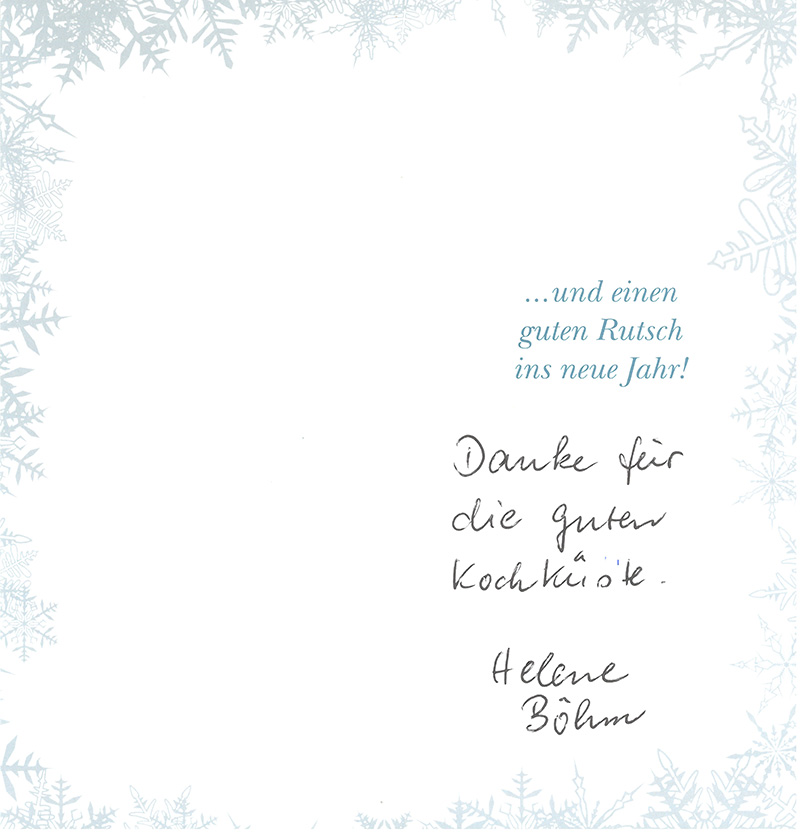 ...und einen
guten Rutsch
ins neue Jahr!
Danke für
die guten
Kochküste.
Helene
Böhm